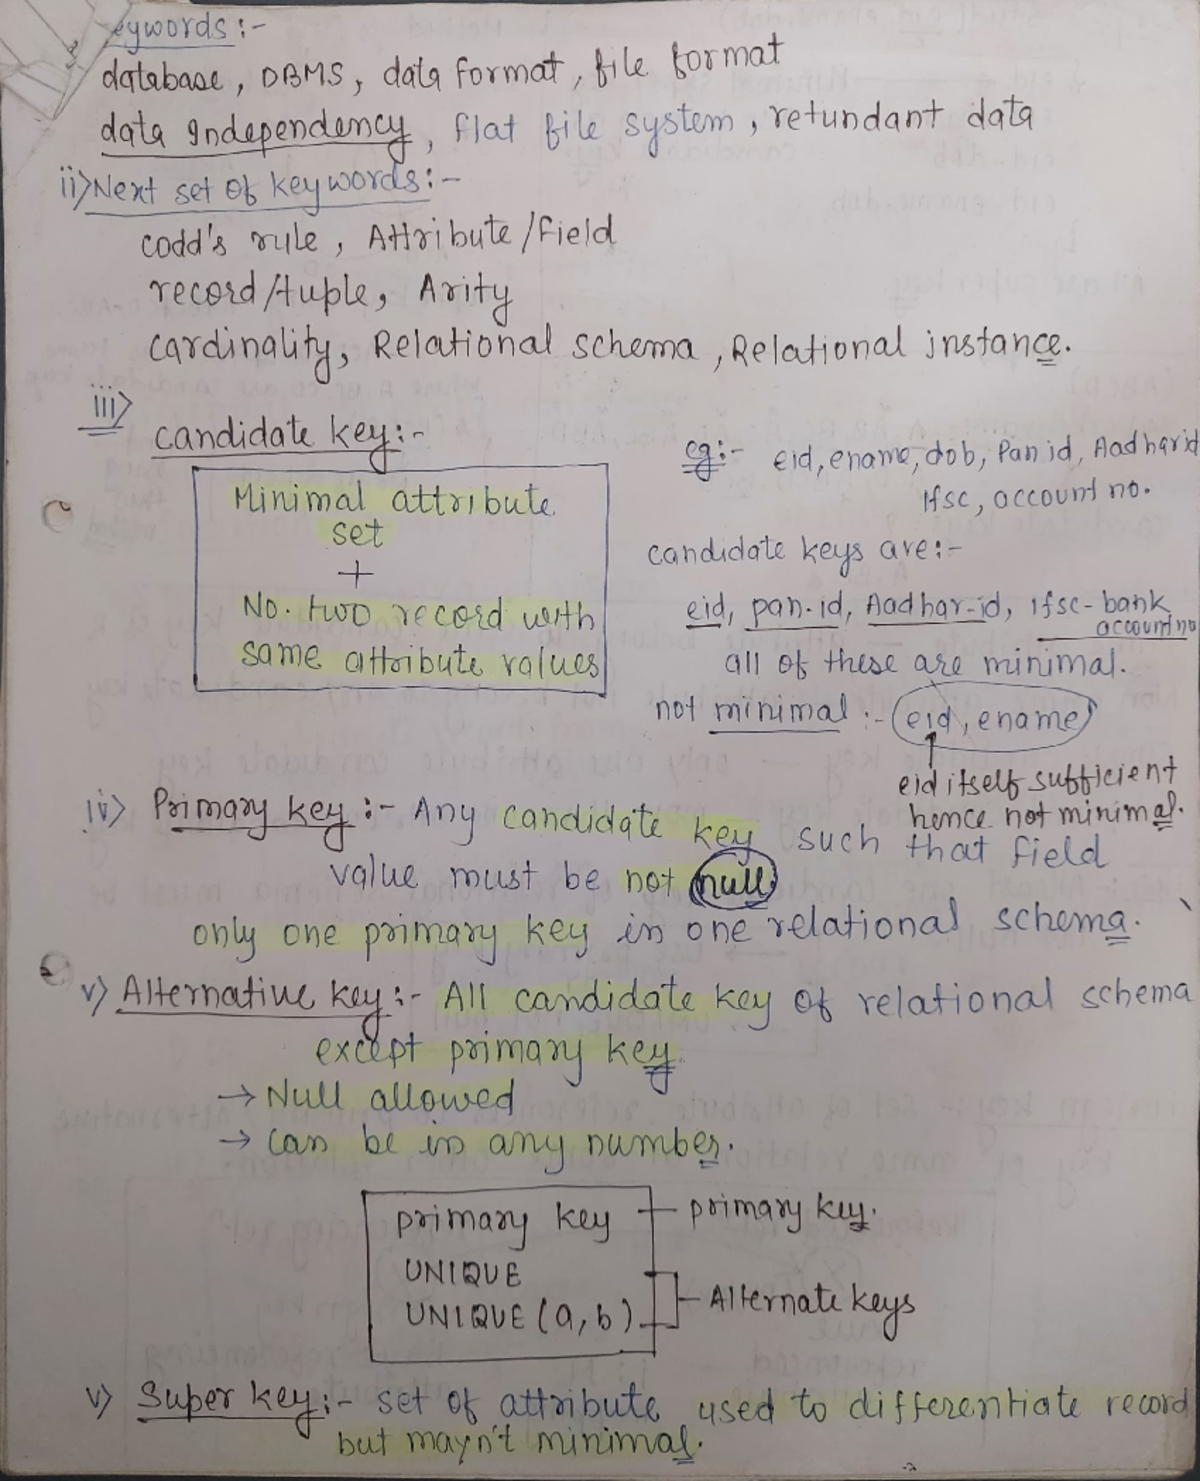 eywords:-
database, DBMS, data format, file format
data Independency, flat file system, retundant data
ii) Next set of keywords:-
codd's rule, Attribute/field
record/tuple, Arity
cardinality, Relational schema, Relational instance.
iii)
candidate key:-
Minimal attribute
set
+
No. two record with
same attribute values
eg:- eid, ename, dob, Pan id, Aadhar id
Ifsc, account no.
candidate keys are:-
eid, pan-id, Aadhar-id, Ifsc-bank
account no
all of these are minimal.
not minimal :- (eid, ename)
eid itself sufficient
hence not minimal.
iv) Primary key:- Any candidate key such that field
value must be not null
only one primary key in one relational schema.
v) Alternative key:- All candidate key of relational schema
except primary key.
→ Null allowed
→ can be in any number.
primary key — primary key.
UNIQUE
UNIQUE (a, b)
Alternate keys
v) Super key:- set of attribute used to differentiate record
but mayn't minimal.